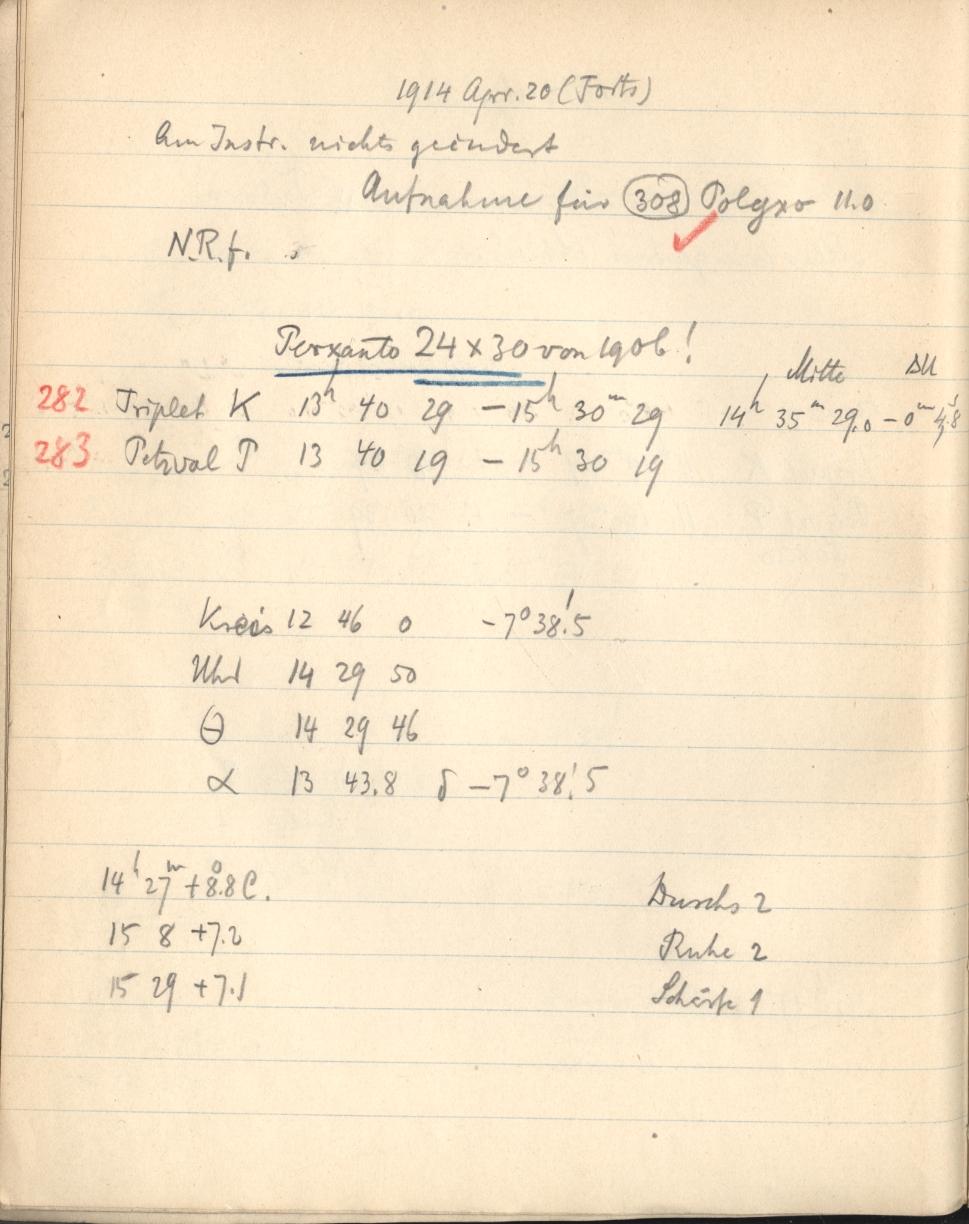 1914 Apr. 20 (Forts)
Am Instr. nichts geändert
Aufnahme für 308 Polyxo 11.0
N.R.f.
Perxanto 24 x 30 von 1906!
Mitte ΔU
282 Triplet K 13h 40 29 – 15h 30m 29 14h 35m 29.0 – 0m 4.s8
283 Petzval P 13 40 19 – 15h 30 19
Kreis 12 46 0 - 7° 38.'5
Uhr 14 29 50
Θ 14 29 46
α 13 43.8 δ – 7° 38.'5
14h 27m + 8.°8 C.
15 8 + 7.2
15 29 + 7.1
Durchs 2
Ruhe 2
Schärfe 1